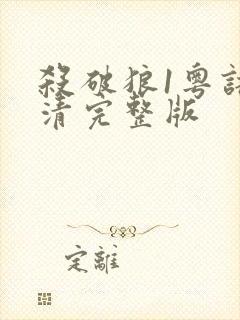 殺破狼1粵語
清完整版
定離